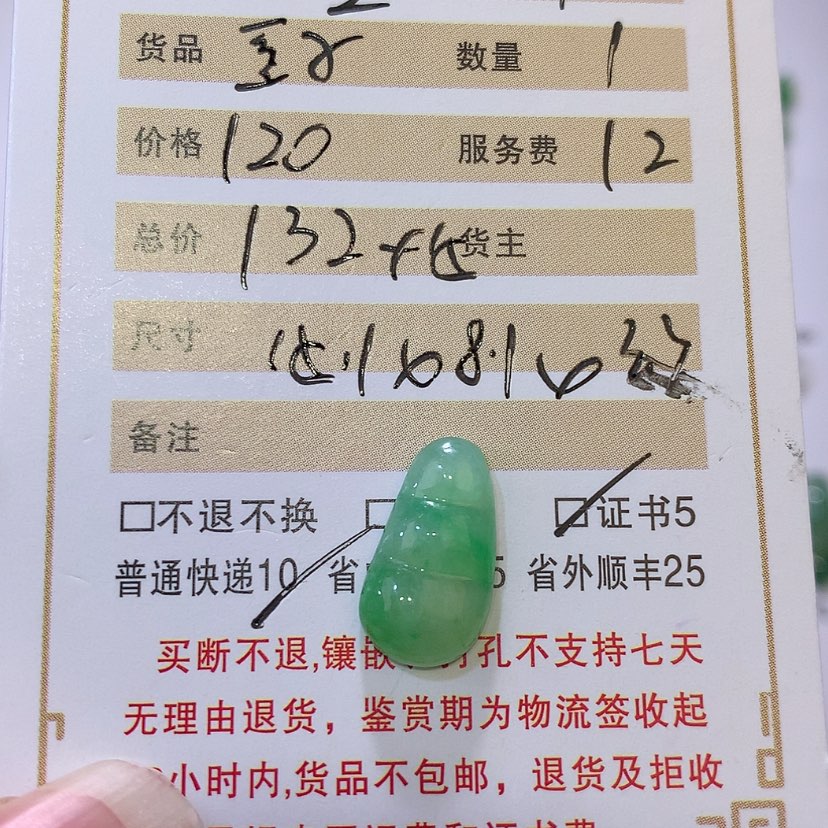 货品 豆子 数量 1
价格 120 服务费 12
总价 132+15 货主
尺寸 15.1×8.1×3.3
备注
□不退不换 □ 证书5
普通快递10 省 5 省外顺丰25
买断不退,镶嵌、打孔不支持七天
无理由退货，鉴赏期为物流签收起
小时内,货品不包邮，退货及拒收